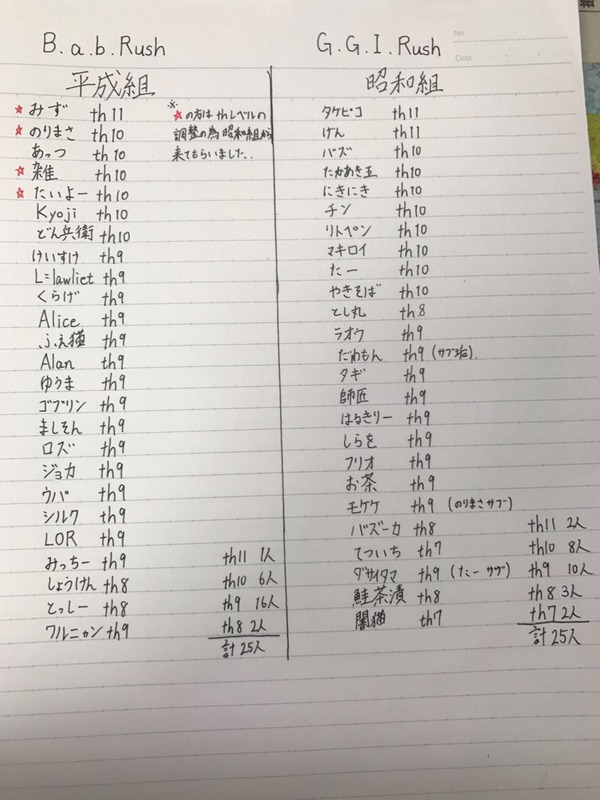 B.a.b.Rush
平成組
☆みず th11
☆のりまさ th10
あっつ th10
☆雑 th10
☆たいよー th10
Kyoji th10
どん兵衛 th10
けいすけ th9
L=lawliet th9
くらげ th9
Alice th9
ふぇ猫 th9
Alan th9
ゆうま th9
ゴブリン th9
ましそん th9
ロズ th9
ジョカ th9
ウバ th9
シルク th9
LOR th9
みっちー th9
しょうけん th8
とっしー th8
ワルニャン th9
※☆の方は thレベルの
調整の為 昭和組から
来てもらいました..
th11 1人
th10 6人
th9 16人
th8 2人
計25人
G.G.I.Rush
No.
Date
昭和組
タケピコ th11
けん th11
バズ th10
たかあき王 th10
にきにき th10
チン th10
リトペン th10
マキロイ th10
たー th10
やきそば th10
とし丸 th8
ラオウ th9
だめもん th9 (サブ垢)
タギ th9
師匠 th9
はるきりー th9
しらを th9
フリオ th9
お茶 th9
モケケ th9 (のりまさサブ)
バズーカ th8
てついち th7
ダサイタマ th9 (たーサブ)
鮭茶漬 th8
闇猫 th7
th11 2人
th10 8人
th9 10人
th8 3人
th7 2人
計25人